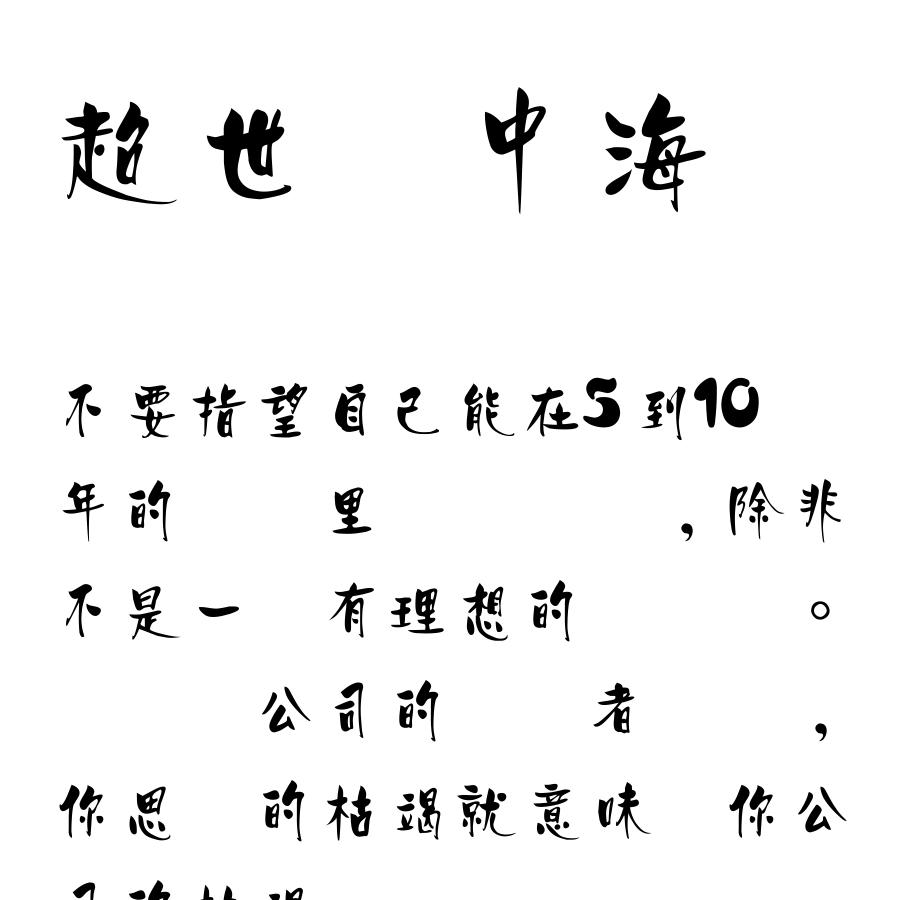 超世 中海
不要指望自己能在5到10
年的 里 ,除非
不是一 有理想的 。
公司的 者 ,
你思 的枯竭就意味 你公